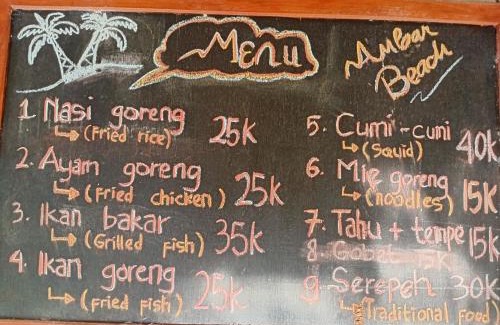 Menu
Ambar
Beach
1 Nasi goreng
(Fried rice) 25K
2. Ayam goreng
(Fried chicken) 25K
3. Ikan bakar
(Grilled fish) 35K
4. Ikan goreng
(Fried fish) 25K
5. Cumi-cumi
(Squid) 40K
6. Mie goreng
(noodles) 15K
7. Tahu + tempe 15K
8.
9 Serepeh 30K
Traditional Food